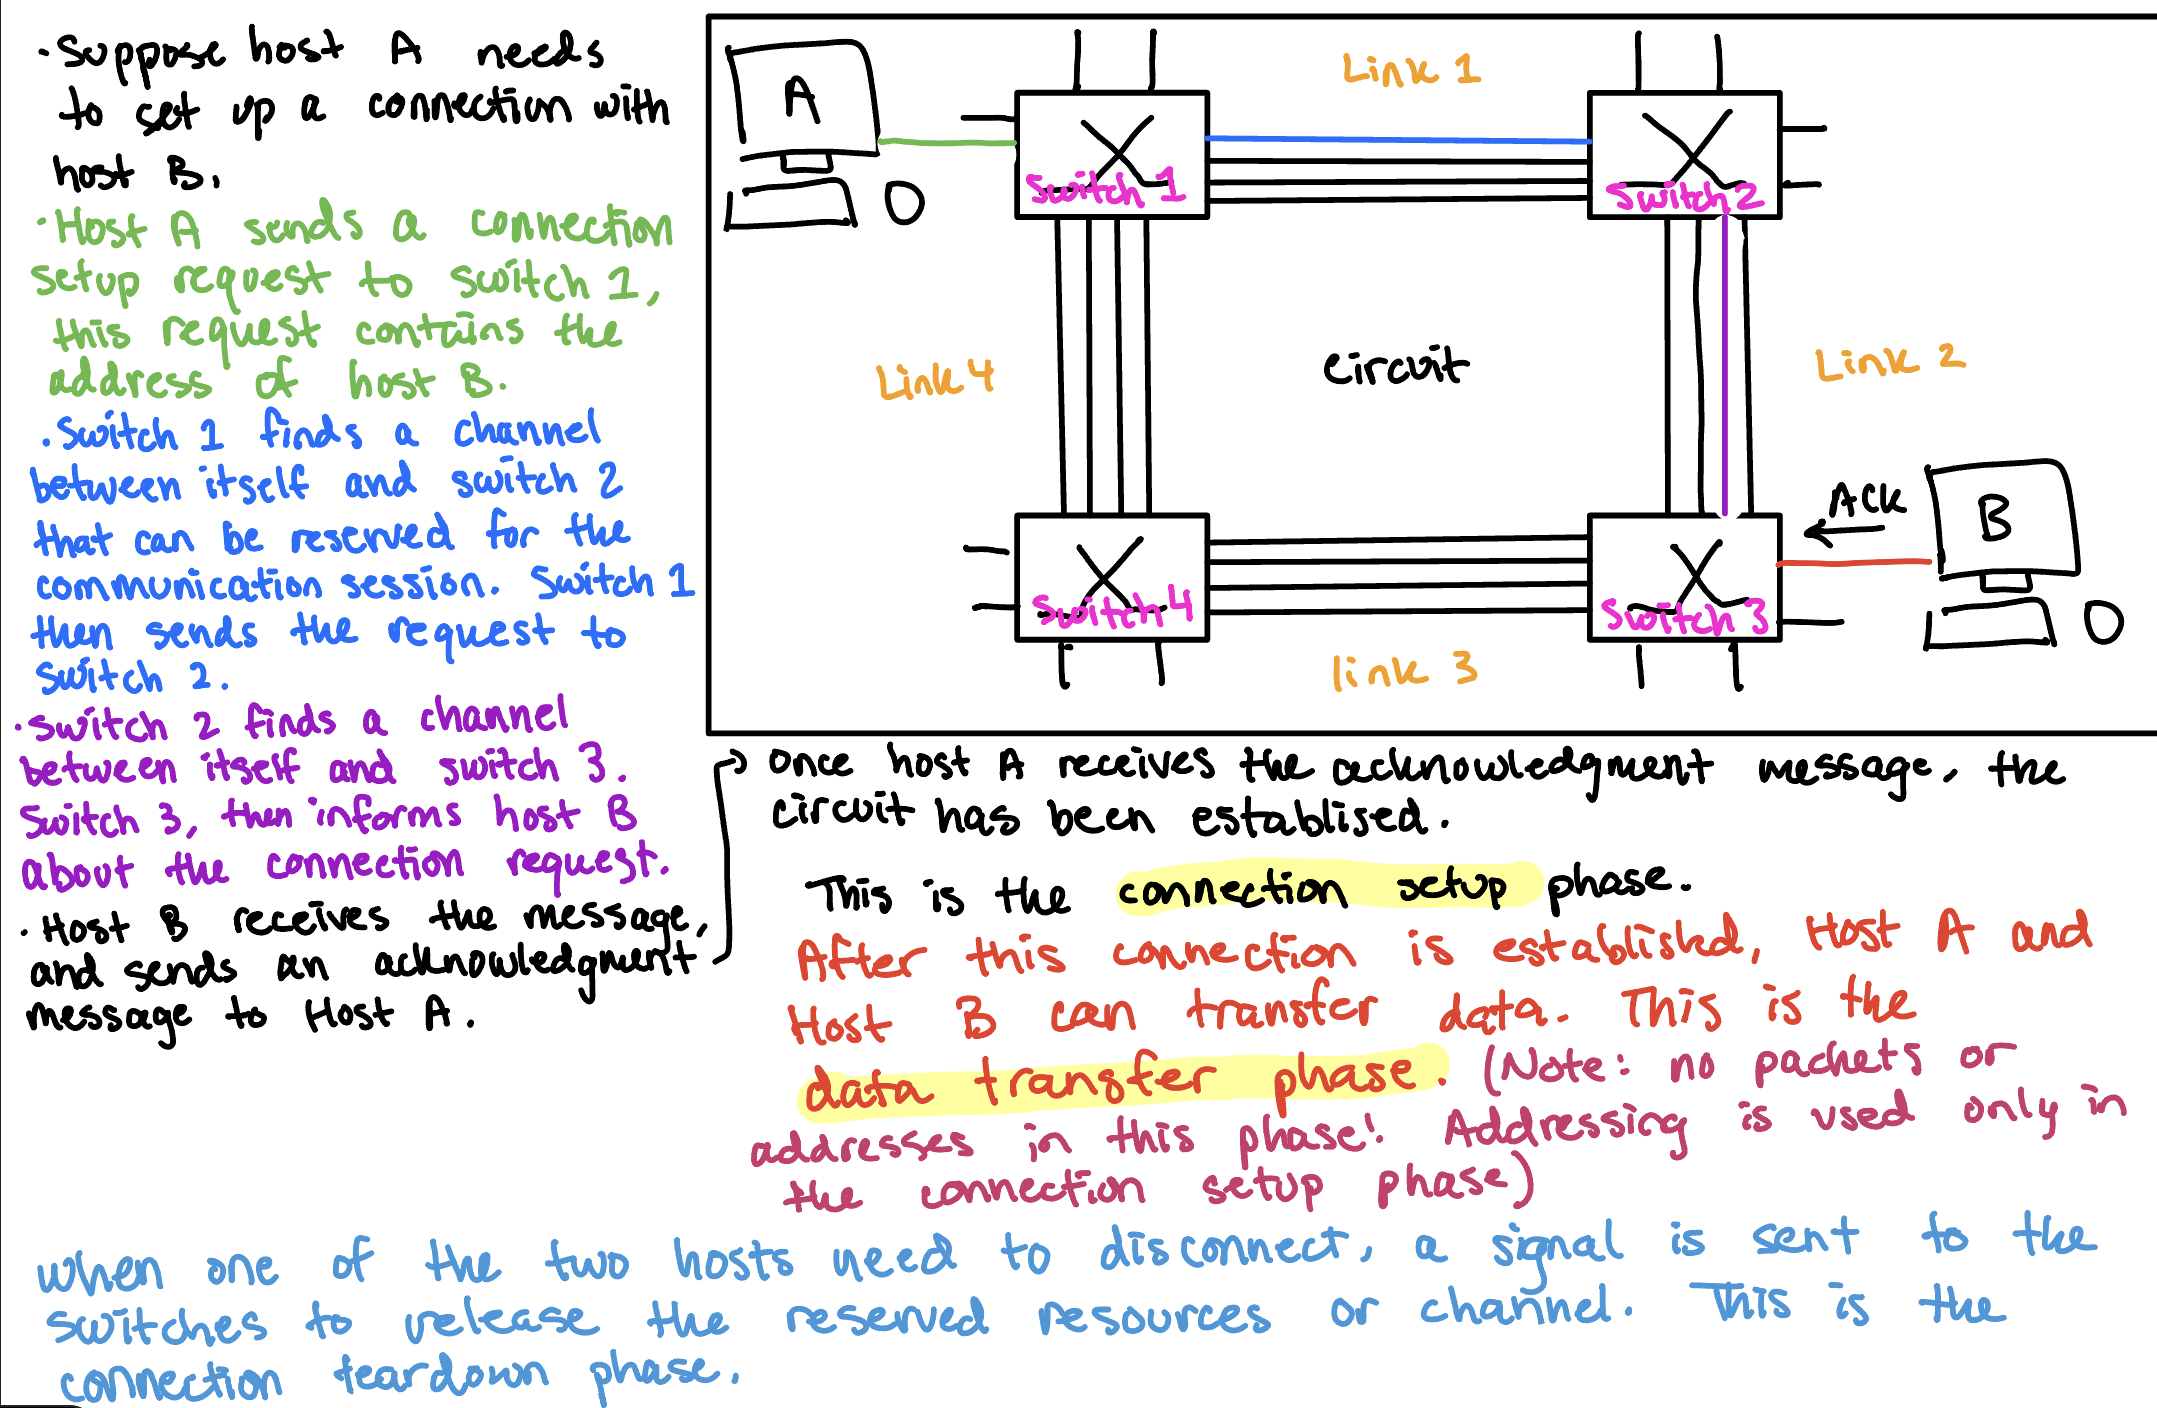 · Suppose host A needs
to set up a connection with
host B.
· Host A sends a connection
setup request to switch 1,
this request contains the
address of host B.
· Switch 1 finds a channel
between itself and switch 2
that can be reserved for the
communication session. Switch 1
then sends the request to
switch 2.
· Switch 2 finds a channel
between itself and switch 3.
Switch 3, then informs host B
about the connection request.
· Host B receives the message,
and sends an acknowledgment
message to Host A.
A
Link 1
Switch 1
Switch 2
Link 4
Circuit
Link 2
ACK
B
Switch 4
Switch 3
link 3
Once host A receives the acknowledgment message, the
circuit has been establised.
This is the connection setup phase.
After this connection is established, Host A and
Host B can transfer data. This is the
data transfer phase. (Note: no packets or
addresses in this phase! Addressing is used only in
the connection setup phase)
When one of the two hosts need to disconnect, a signal is sent to the
switches to release the reserved resources or channel. This is the
connection teardown phase.